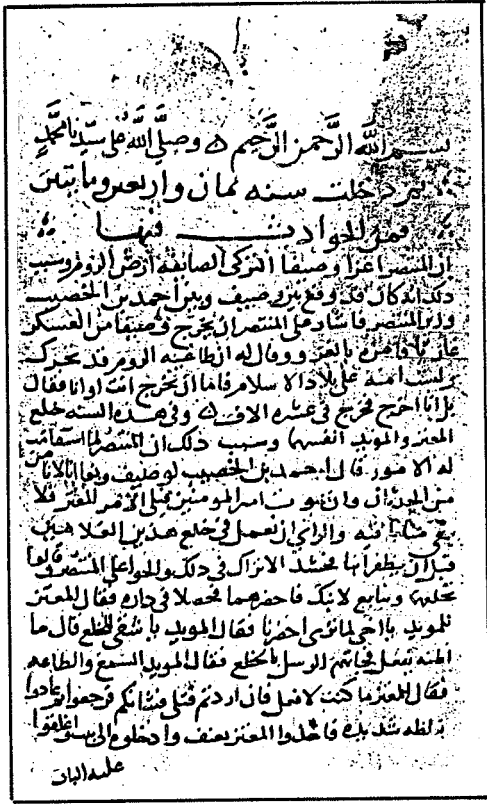 بسم الله الرحمن الرحيم ه وصلى الله على سيدنا محمد
ثم دخلت سنه ثمان واربعين وماتين
فمن الحوادث فيها
ان المنتصر اغزا وصيفا التركي الصائفه ارض الروم وسبب
ذلك انه كان قد وقع بين وصيف وبين احمد بن الخصيب
وزير المنتصر فاشار على المنتصر ان يخرج وصيفا من العسكر
غازيا وامره بالغزو وقال له ان طاغيه الروم قد تحرك
ولست امنه على بلاد الاسلام فاما ان تخرج انت او انا فقال
بل انا اخرج فخرج في عشره الاف ه وفي هذه السنه خلع
المعتز والمويد انفسهما وسبب ذلك ان المنتصر لما استقامت
له الامور قال احمد بن الخصيب لوصيف وبغا انا لا نامن
من الحدثان وان يموت امير المومنين فيلي الامر المعتز فلا
يبقي منا باقيه والراي ان نعمل في خلع هذين الغلامين
قبل ان يظفرا بنا فجد الاتراك في ذلك والحوا على المنتصر وقالوا
نخلعهما ونبايع لابنك فاحضرهما فجعلا في دار فقال المعتز
للمويد يا اخي لم ترى احضرنا فقال المويد يا شقي للخلع قال ما
اظنه يفعل فجاتهم الرسل بالخلع فقال المويد السمع والطاعه
فقال المعتز ما كنت لافعل فان اردتم قتلي فشانكم فرجعوا ثم عادوا
بغلظه شديده فاخذوا المعتز بعنف وادخلوه الى بيت واغلقوا
عليه الباب